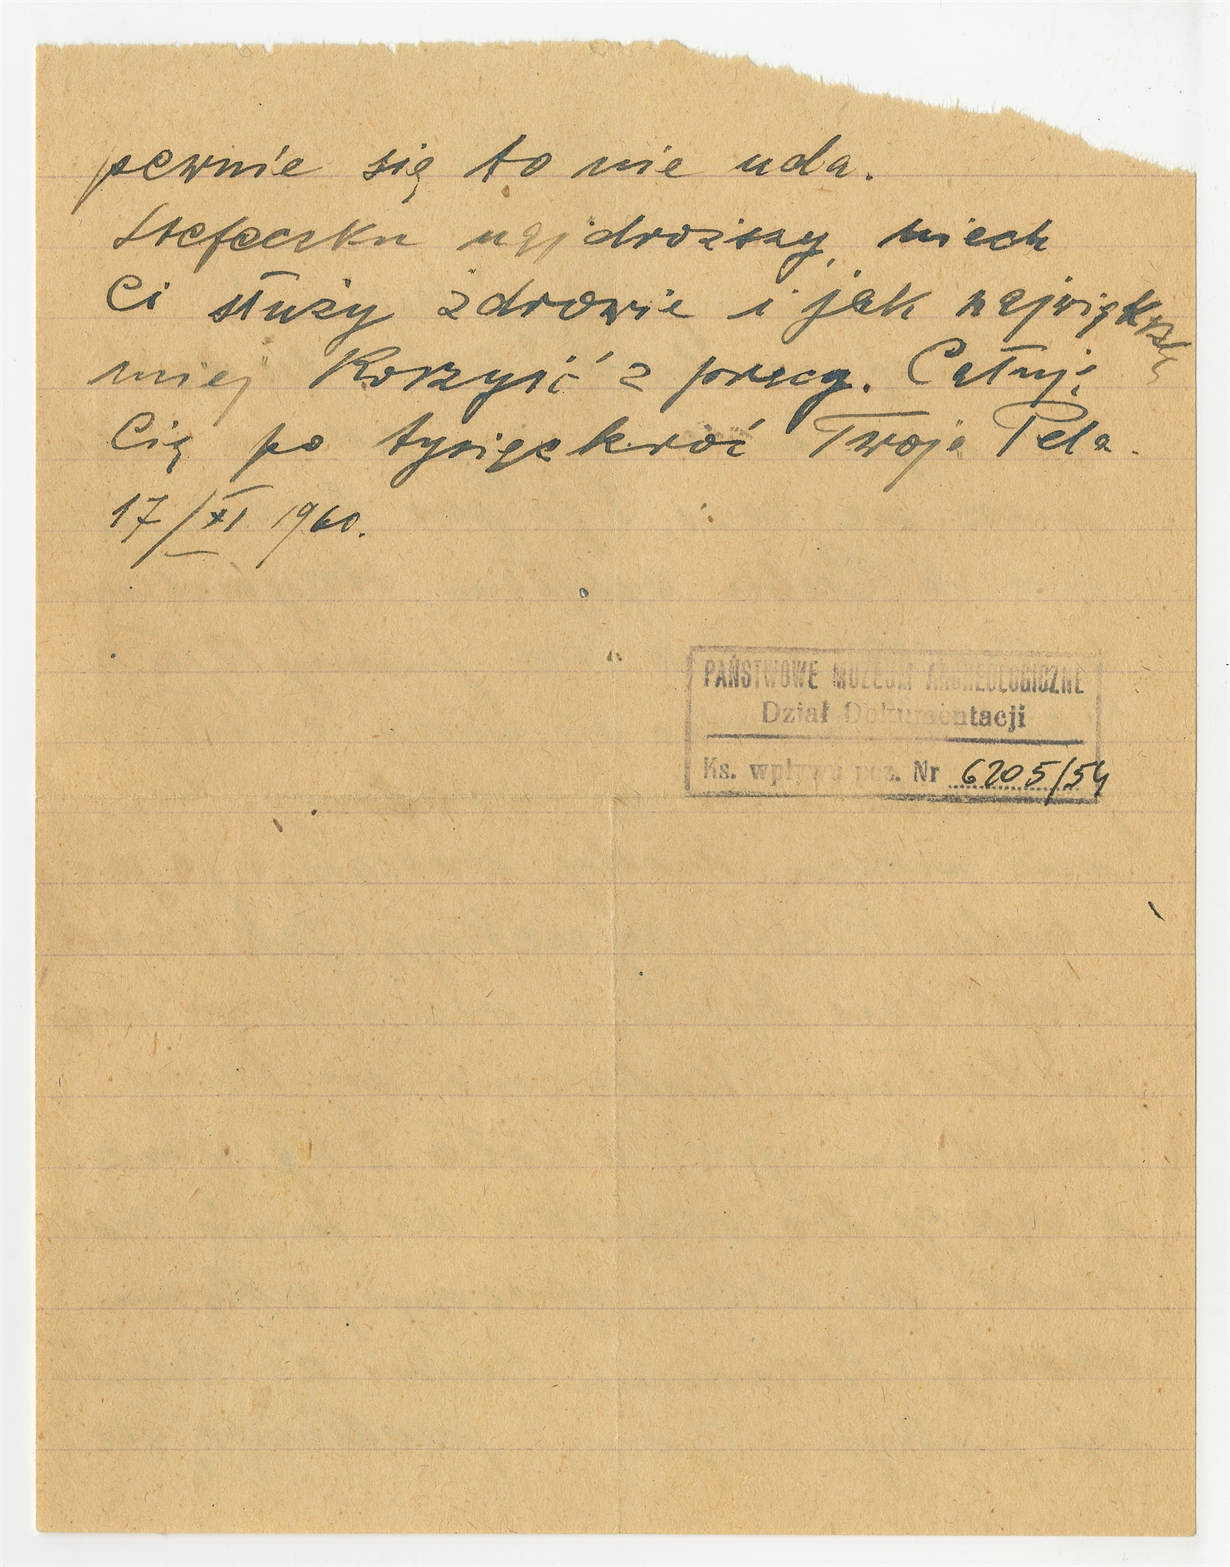 pewnie się to nie uda.
Stefeczku najdroższy, niech
Ci służy zdrowie i jak największą
miej korzyść z pracy. Całuję
Cię po tysiąckroć Twoja Pela.
17/XI 1960.
PAŃSTWOWE MUZEUM ARCHEOLOGICZNE
Dział Dokumentacji
Ks. wpływu poz. Nr 6205/54